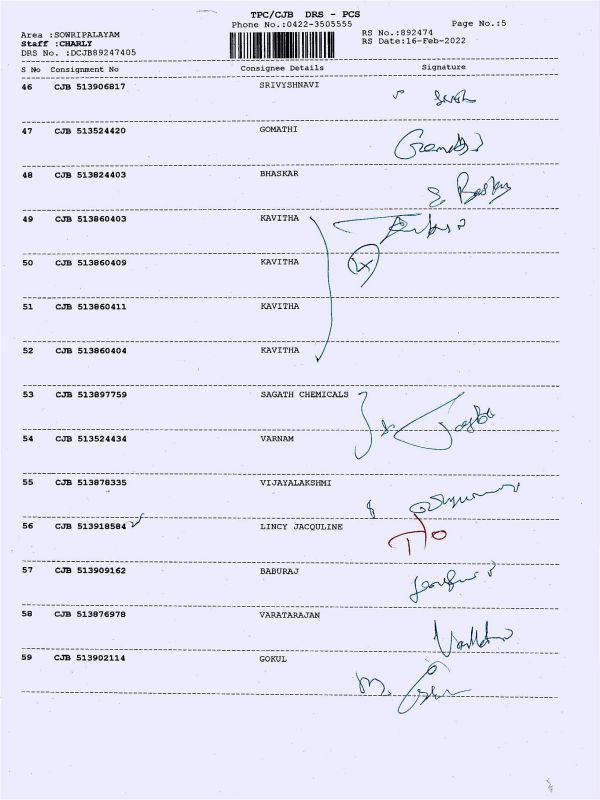 TPC/CJB DRS - PCS
Phone No.:0422-3505555
Page No.:5
Area :SOWRIPALAYAM
RS No.:892474
Staff :CHARLY
RS Date:16-Feb-2022
DRS No. :DCJB89247405
S No Consignment No Consignee Details Signature
46 CJB 513906817 SRIVYSHNAVI
47 CJB 513524420 GOMATHI
48 CJB 513824403 BHASKAR
49 CJB 513860403 KAVITHA
50 CJB 513860409 KAVITHA
51 CJB 513860411 KAVITHA
52 CJB 513860404 KAVITHA
53 CJB 513897759 SAGATH CHEMICALS
54 CJB 513524434 VARNAM
55 CJB 513878335 VIJAYALAKSHMI
56 CJB 513918584 LINCY JACQULINE
57 CJB 513909162 BABURAJ
58 CJB 513876978 VARATARAJAN
59 CJB 513902114 GOKUL